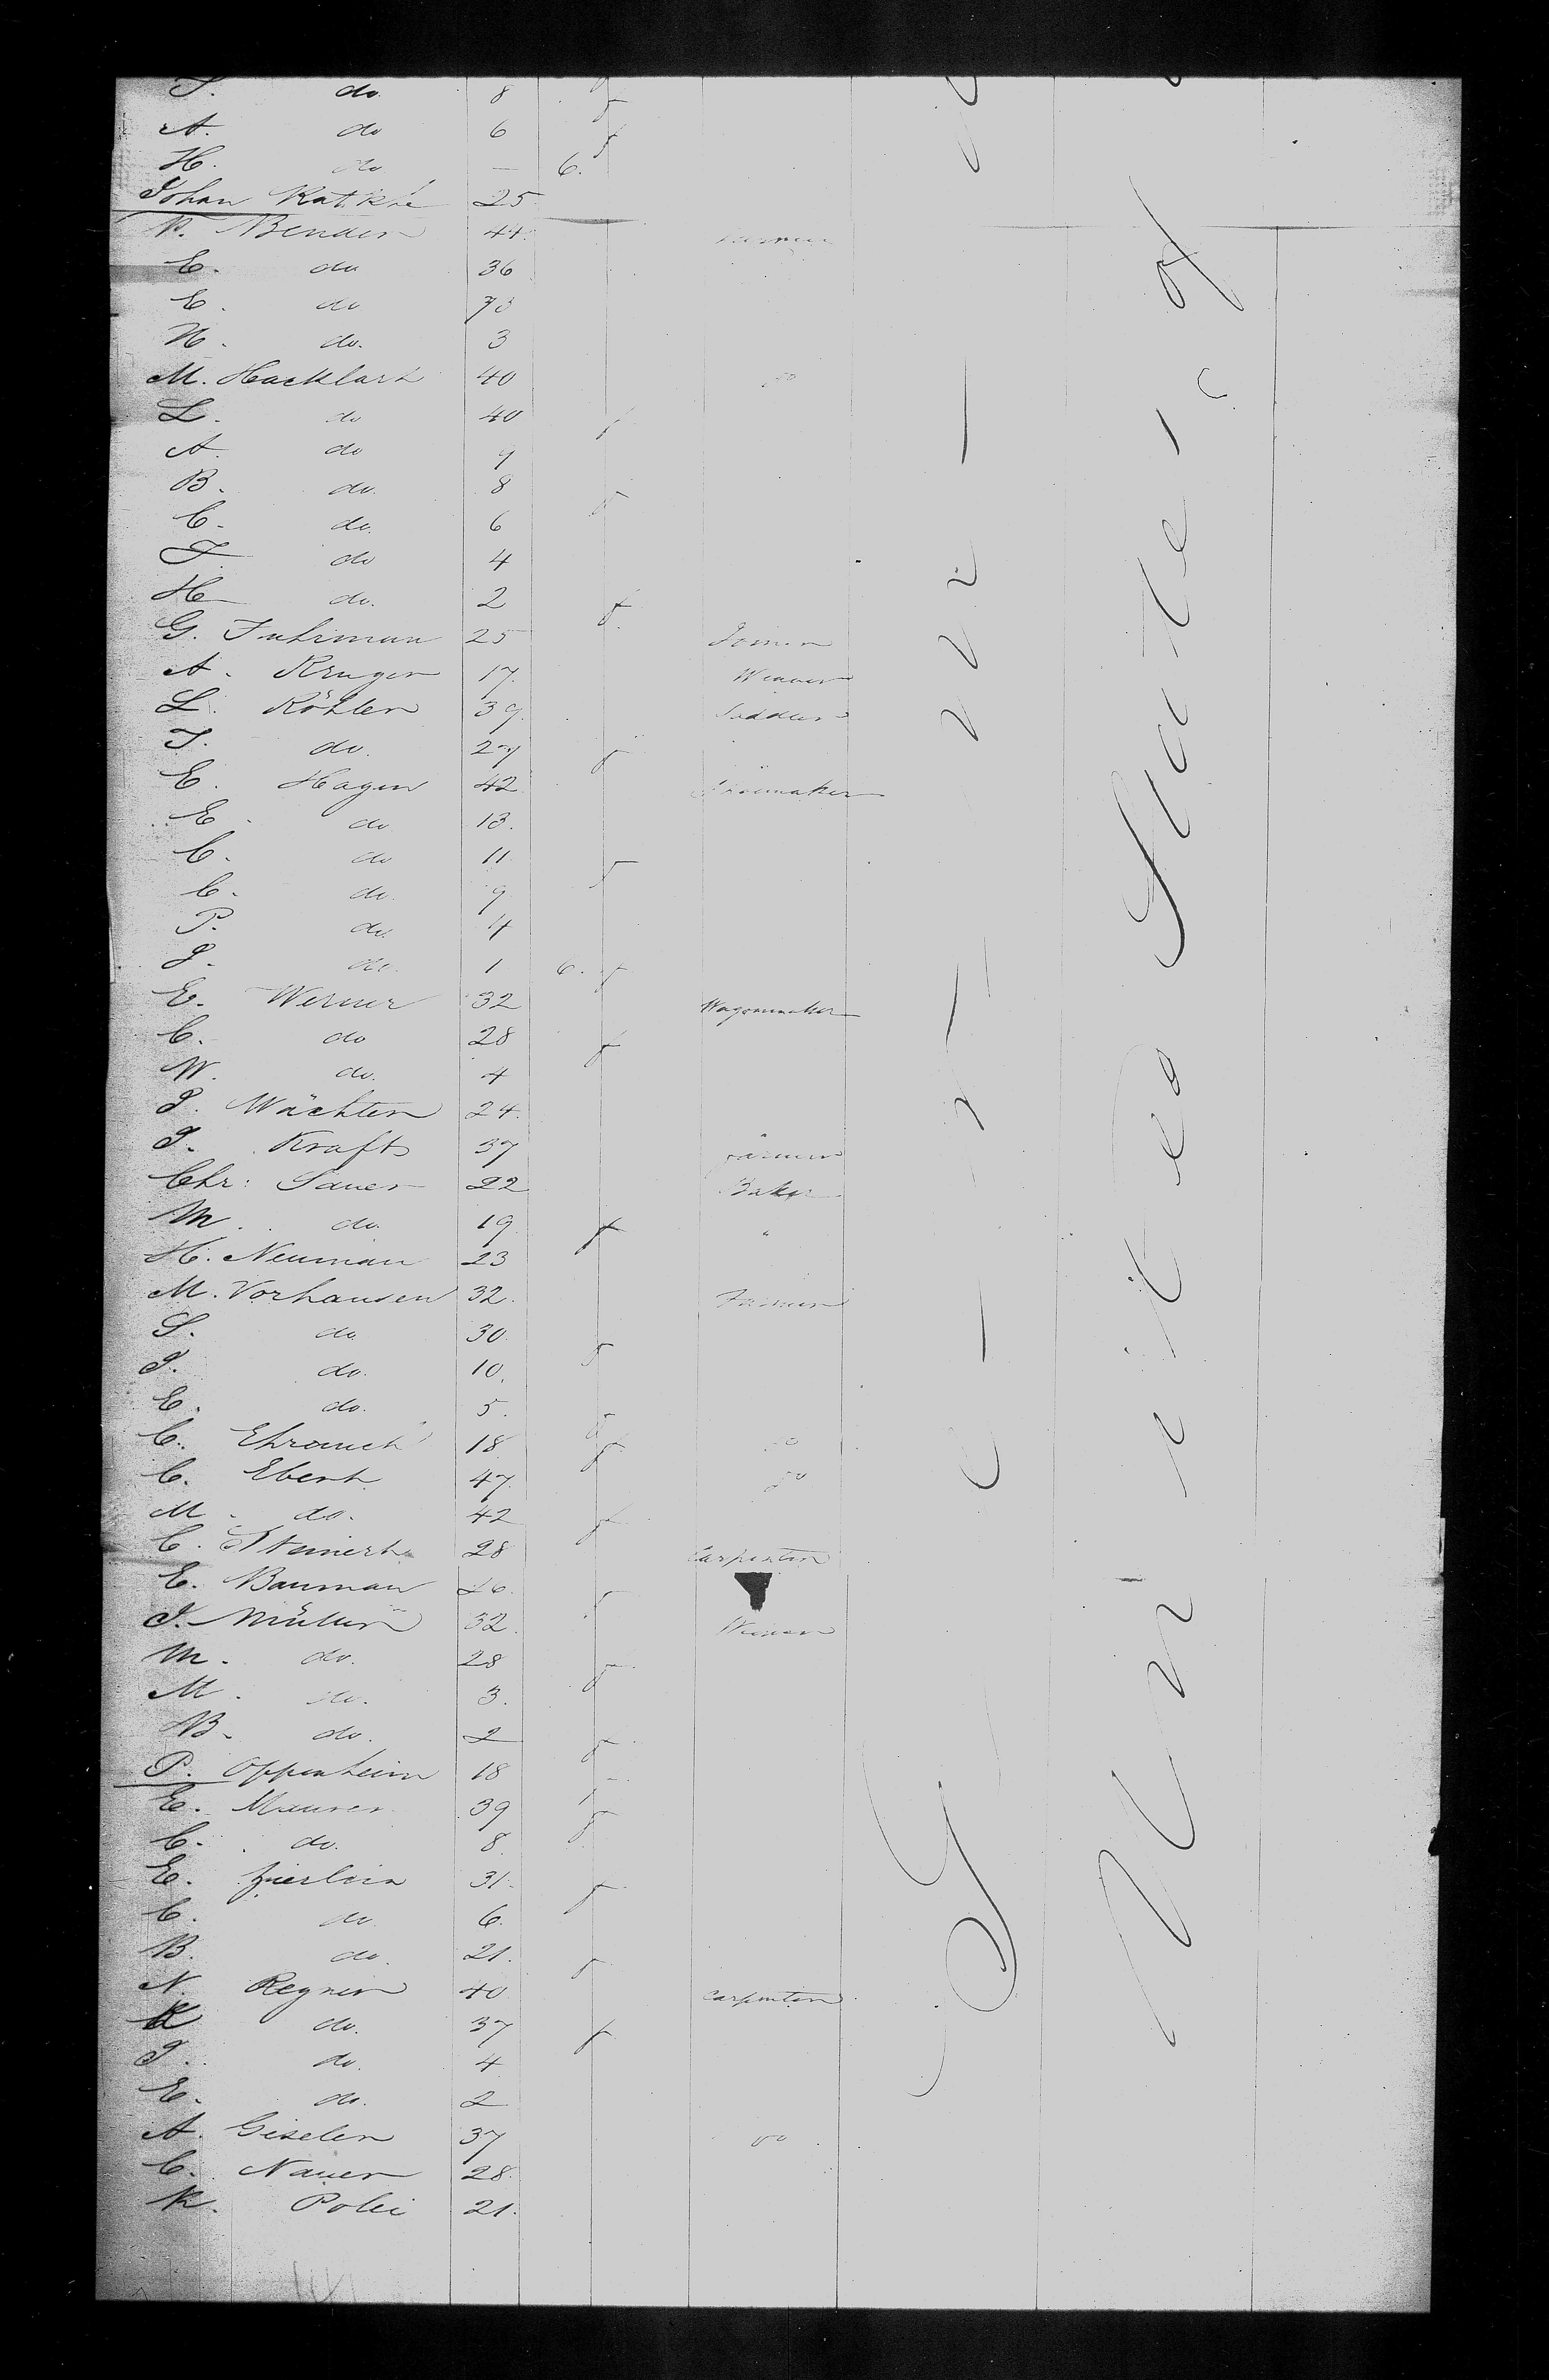 do 8
A. do 6
H. do — 6.
Johan 25
Bender 44. Farmer
E. do 36
E. do
N. do. 3
M. Hacklart 40 do
L. do 40
A. do 9
B. do. 8
C. do. 6
F. do 4
H do. 2
G. Fuhrman 25 Joiner
A. Kruger 17. Weaver
L. Köhler 39. Saddler
do. 27
E. Hagen 42 Shoemaker
E. do 13.
C. do 11
C. do. 9
P. do. 4
J. do. 1 6.
E. Werner 32 Wagonmaker
C. do 28
W. do. 4
J. Wächter 24.
J. Kraft 37 Farmer
Chr: Sauer 22 Baker
M. do. 19 "
H. Neuman 23
M. Vorhausen 32. Farmer
S. do 30.
J. do. 10.
E. do. 5.
C. 18 do
C. Ebert 47. do
M. do. 42
C. Steinert 28 Carpenter
E. Bauman 26.
J. Müller 32. Weaver
M. do. 28
M. do. 3.
B. do. 2
P. Oppenheim 18
E. Maurer 39
C. do. 8.
E. Zierlein 31.
C. do 6.
B. do. 21.
N. Regner 40 Carpenter
K do. 37
J. do. 4
E. do. 2
A. Giseler 37 do
C. Nauer 28.
K. Polei 21.
Germany
United States of